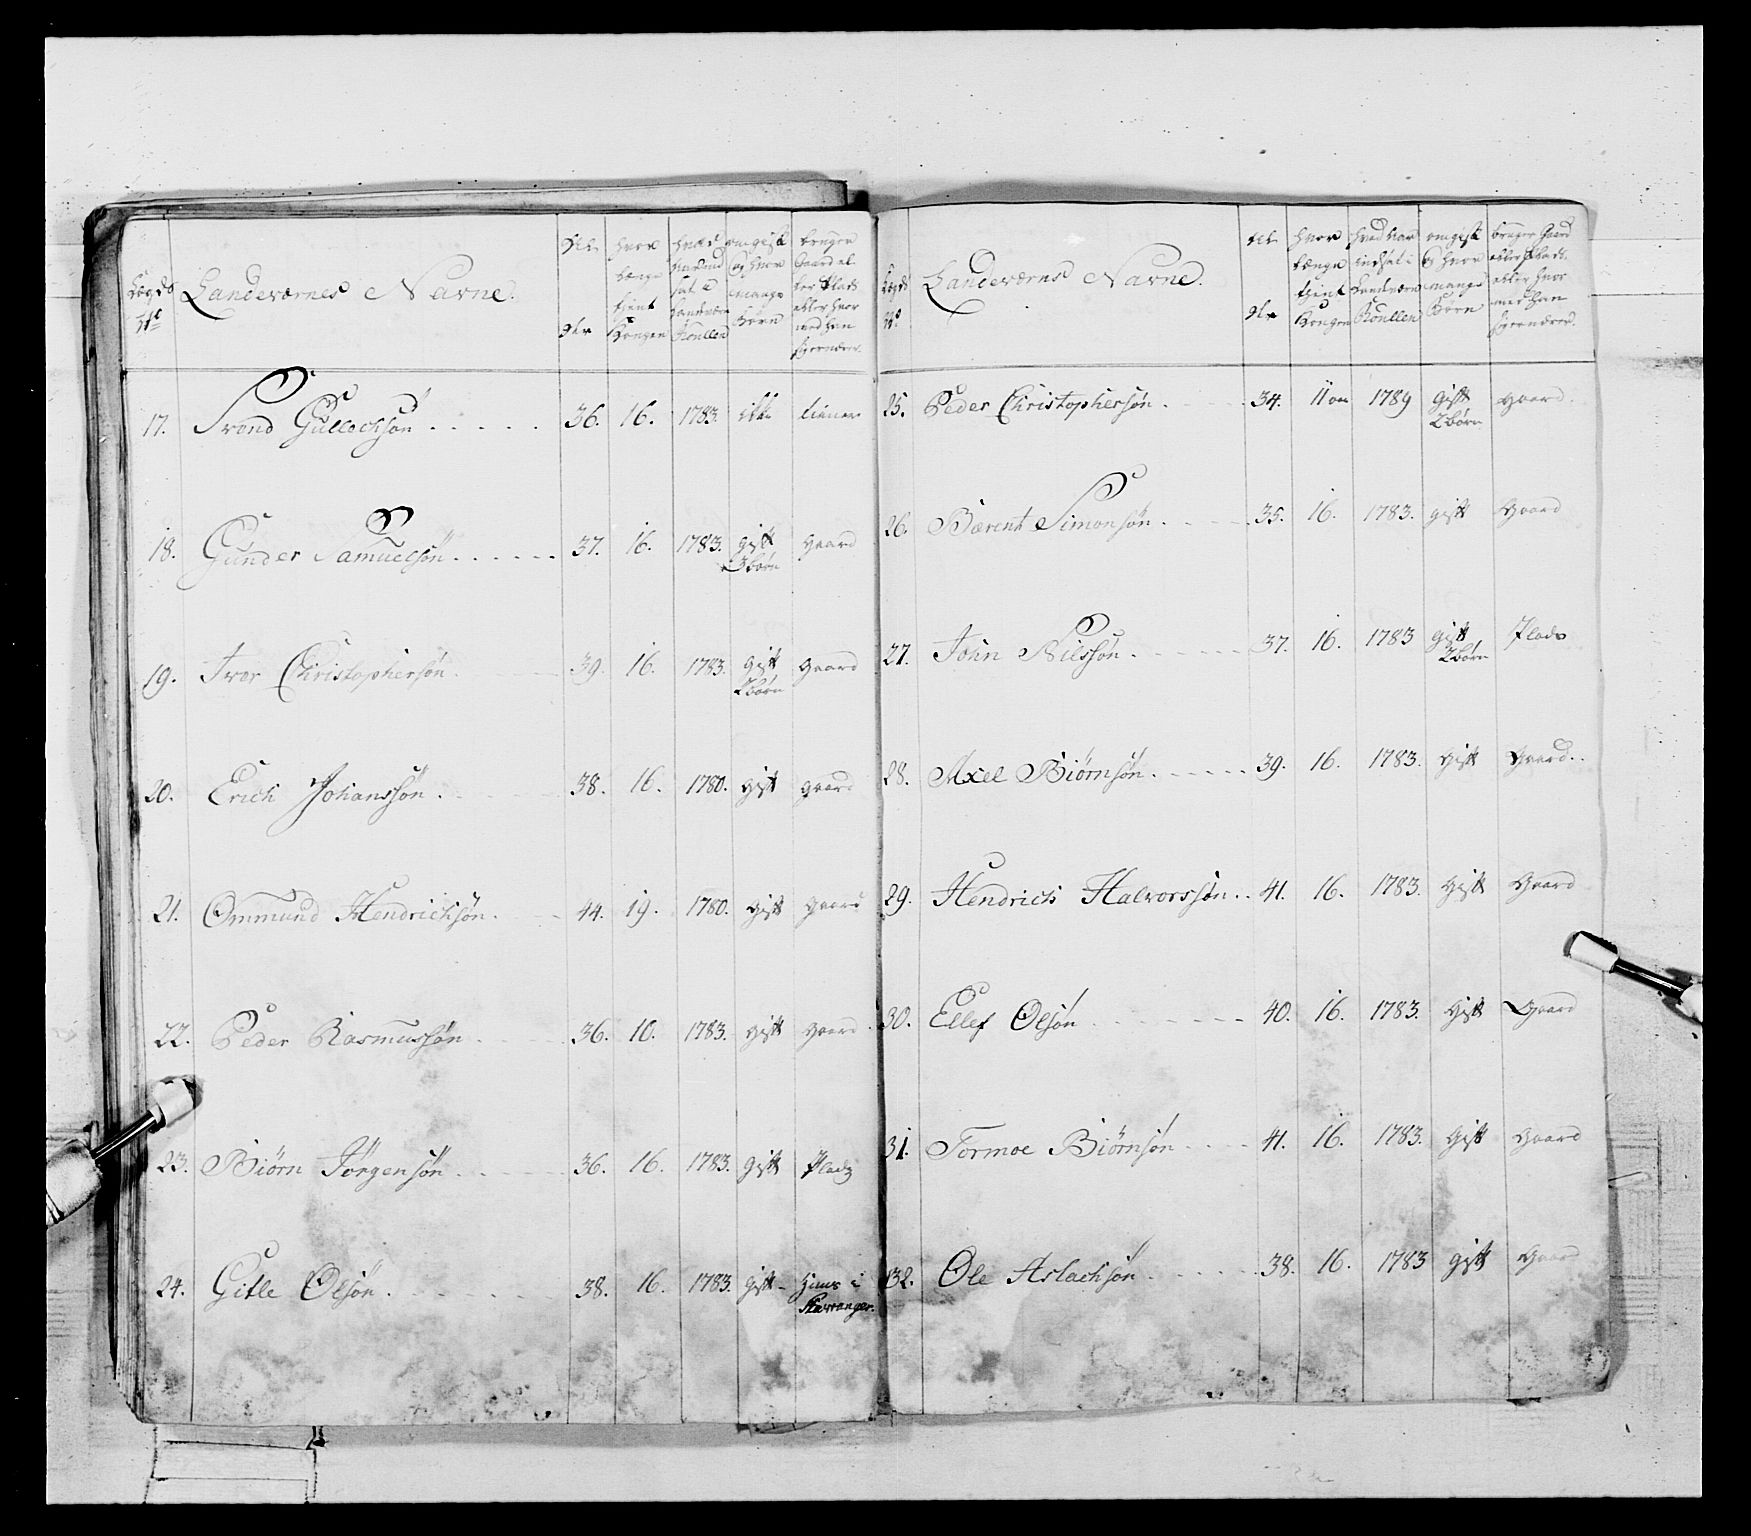 Lægds
No
Landeværnes Navne.
Al-
der
hvor
længe
tient
Kongen
hvad
Aar ind
sat i
Landværn
Roullen
om gift
og hvor
mange
Børn
bruger
Gaard el-
ler Plads
eller hvor
med han
sig ernærer.
17. Trond Gullechsøn 36. 16. 1783. ikke tiener
18. Gunder Samuelsøn 37. 16. 1783. gift Gaard
3 børn
19. Iver Christophersøn 39. 16. 1783. gift Gaard
2 børn
20. Erich Johanssøn 38. 16. 1780. gift gaard
21. Ommund Hendrichsøn 44. 19. 1780. gift gaard
22. Peder Rasmussøn 36. 10. 1783. gift gaard
23. Biørn Jørgensøn 36. 16. 1783. gift Plads
24. Gitle Olsøn 38. 16. 1783. gift Huus i
Stavanger.
Lægds
No
Landeværns Navne.
Al-
der
hvor
længe
tient
Kongen
hvad Aar
indsat i
Landværn
Roullen
om gift
og hvor
mange
Børn
bruger Gaard
eller Plads
eller hvor
med han
sig ernærer.
25. Peder Christophersøn 34. 11 1789 gift gaard
2 børn
26. Bærent Simonsøn 35. 16. 1783. gift Gaard
27. John Nilssøn 37. 16. 1783 gift Plads
2 børn
28. Axel Biørnsøn 39. 16. 1783. gift Gaard
29. Hendrich Halvorssøn 41. 16. 1783. gift Gaard
30. Ellef Olsøn 40. 16. 1783. gift Gaard
31. Tormoe Biørnsøn 41. 16. 1783. gift Gaard
32. Ole Aslachsøn 38. 16. 1783 gift Gaard